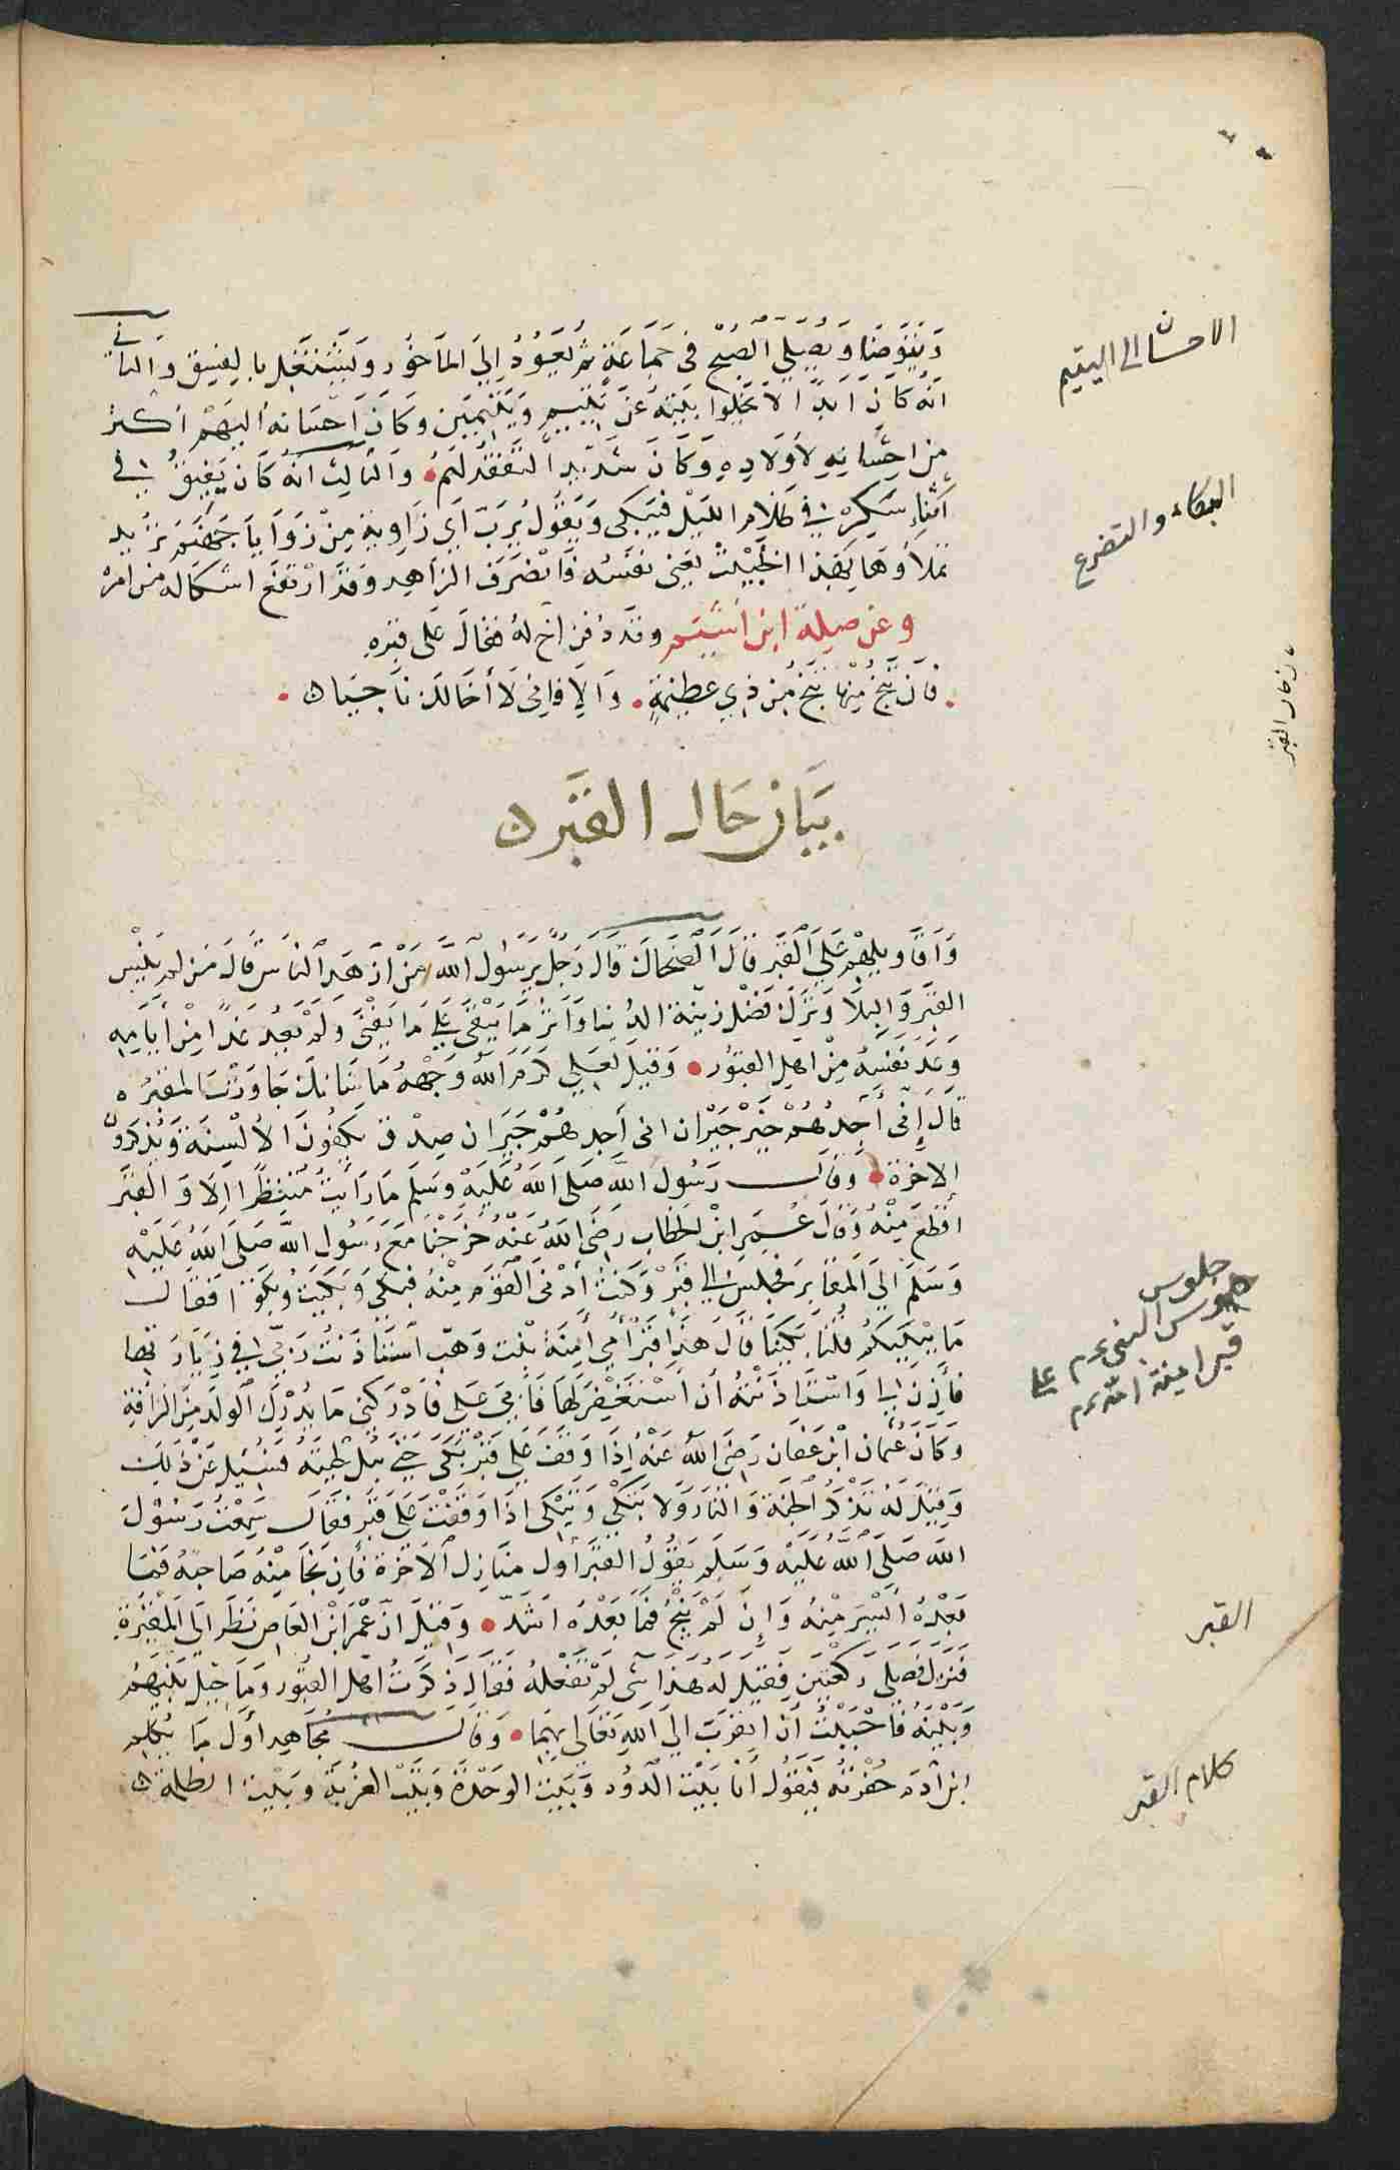 ويتوضا ويصلي الصبح في جماعة ثم يعود الى الماخور ويشتغل بالفسق والثاني
انه كان ابدا لا يخلوا بيته عن يتيم ويتيمين وكان احسانه اليهم اكثر
من احسانه لاولاده وكان شديد التفقد لهم والثالث انه كان يفيق في
اثناء سكره في ظلام الليل فيبكي ويقول يرب اي زاوية من زوايا جهنم تريد
تملأوها بهذا الخبيث يعني نفسه فانصرف الزاهد وقد ارتفع اشكاله من امره
وعن صلة ابن اشيم وقد دفن اخ له فقال على قبره
فان تنج منها تنج من ذي عظيمة والا فاني لا أخالك ناجيا
بيان حال القبر
واقاويلهم على القبر قال الضحاك قال رجل يرسول الله من ازهد الناس قال من لم ينس
القبر والبلا وترك فضل زينة الدنيا واثر ما يبقى على ما يفنى ولم يعد غدا من أيامه
وعد نفسه من اهل القبور وقيل لعلي كرم الله وجهه ما شانك جاورت المقبره
قال إني أجدهم خير جيران اني أجدهم جيران صدق يكفون الألسنة ويذكرون
الاخرة وقال رسول الله صلى الله عليه وسلم ما رأيت منظرا الا والقبر
أفظع منه وقال عمر ابن الخطاب رضي الله عنه خرجنا مع رسول الله صلى الله عليه
وسلم الى المقابر فجلس الى قبر وكنت أدنى القوم منه فبكى وبكيت وبكوا فقال
ما يبكيكم قلنا بكينا قال هذا قبر أمي أمنة بنت وهب استأذنت ربي في زيارتها
فأذن لي واستأذنته أن أستغفر لها فأبى علي فادركني ما يدرك الولد من الرأفة
وكان عثمان ابن عفان رضي الله عنه إذا وقف على قبر بكى حتى يبل لحيته فسئل عن ذلك
وقيل له تذكر الجنة والنار ولا تبكي وتبكي اذا وقفت على قبر فقال سمعت رسول
الله صلى الله عليه وسلم يقول القبر أول منازل الاخرة فان نجا منه صاحبه فما
بعده أيسر منه وإن لم ينج فما بعده اشد وقيل ان عمر ابن العاص نظر الى المقبرة
فنزل فصلى ركعتين فقيل له هذا شي لم تفعله فقال ذكرت اهل القبور وما حيل بينهم
وبينه فاحببت أن اتقرب الى الله تعالى بهما وقال مجاهد أول ما يكلم
ابن آدم حفرته فيقول أنا بيت الدود وبيت الوحدة وبيت الغربة وبيت الظلمة
الاحسان الى اليتيم
البكاء والتضرع
بيان حال القبر
جلوس
جلوس النبى عم على
قبر امينة امه عم
القبر
كلام القبر